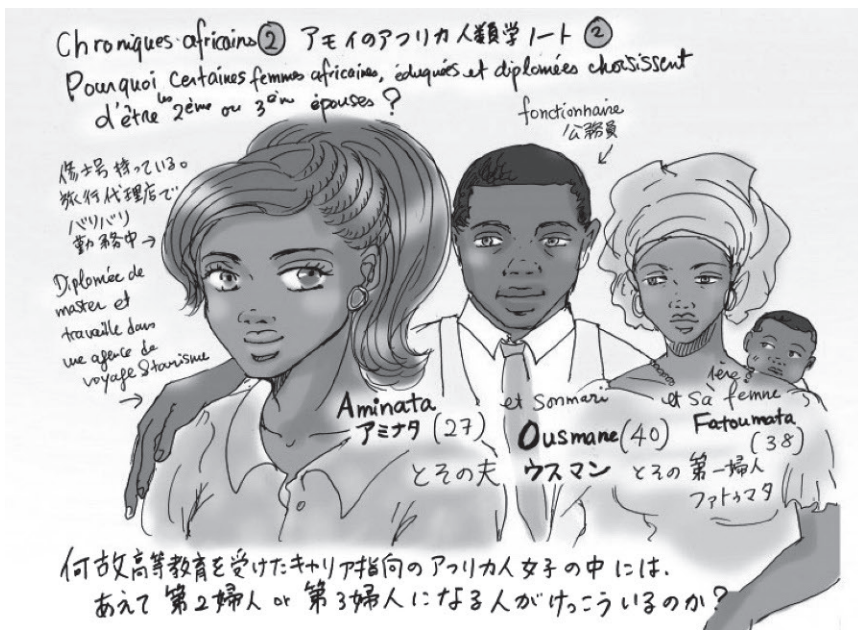 Chroniques africains ② アモイのアフリカ人類学ノート ②
Pourquoi certaines femmes africaines, éduqués et diplomées choisissent
d'être les 2ème ou 3ème épouses ?
fonctionnaire
公務員
修士号持っている。
旅行代理店で
バリバリ
勤務中→
Diplomée de
master et
travaille dans
une agence de
voyage & tourisme
Aminata
アミナタ (27)
et son mari
Ousmane (40)
とその夫 ウスマン
et sa 1ère femme
Fatoumata
(38)
とその 第一婦人
ファトゥマタ
何故高等教育を受けたキャリア指向のアフリカ人女子の中には、
あえて 第2婦人 or 第3婦人になる人がけっこういるのか?